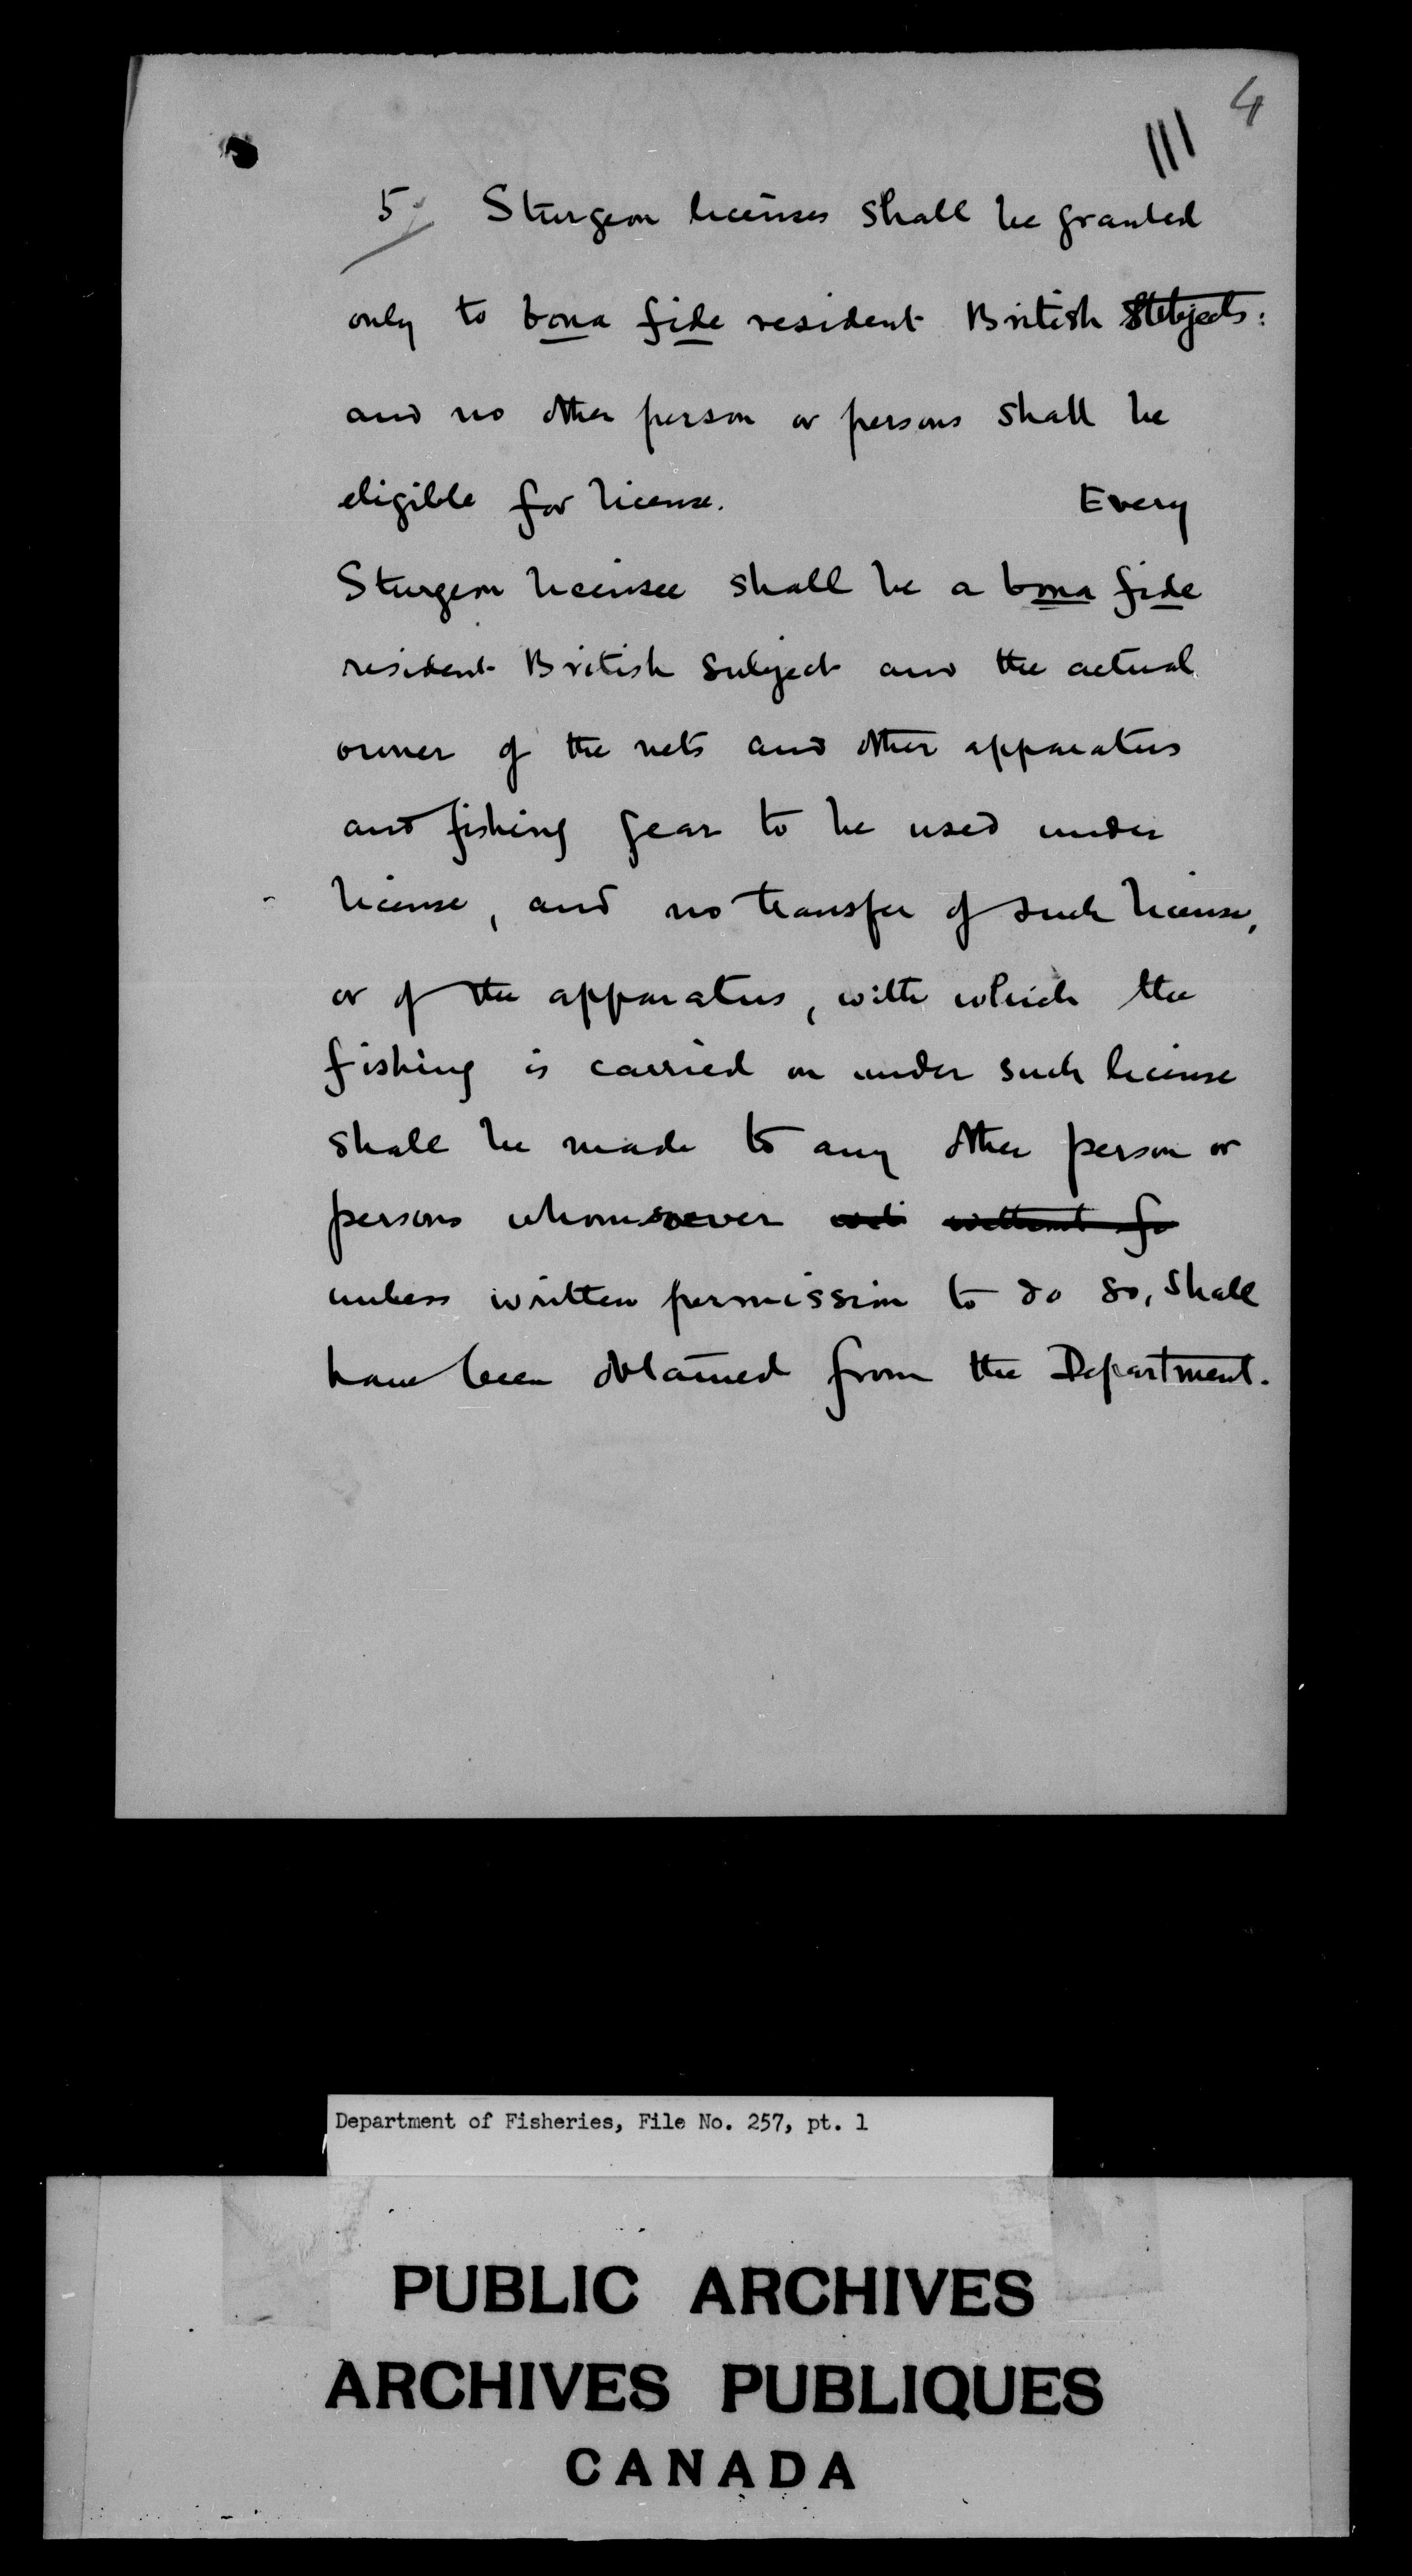 4
111
5. Sturgeon licenses shall be granted
only to bona fide resident British Subjects:
and no other person or persons shall be
eligible for license. Every
Sturgeon licensee shall be a bona fide
resident British Subject and the actual
owner of the nets and other apparatus
and fishing gear to be used under
license, and no transfer of such license,
or of the apparatus, with which the
fishing is carried on under such license
shall be made to any other person or
persons whomsoever wit without fo
unless written permission to do so, shall
have been obtained from the Department.
Department of Fisheries, File No. 257, pt. 1
PUBLIC ARCHIVES
ARCHIVES PUBLIQUES
CANADA